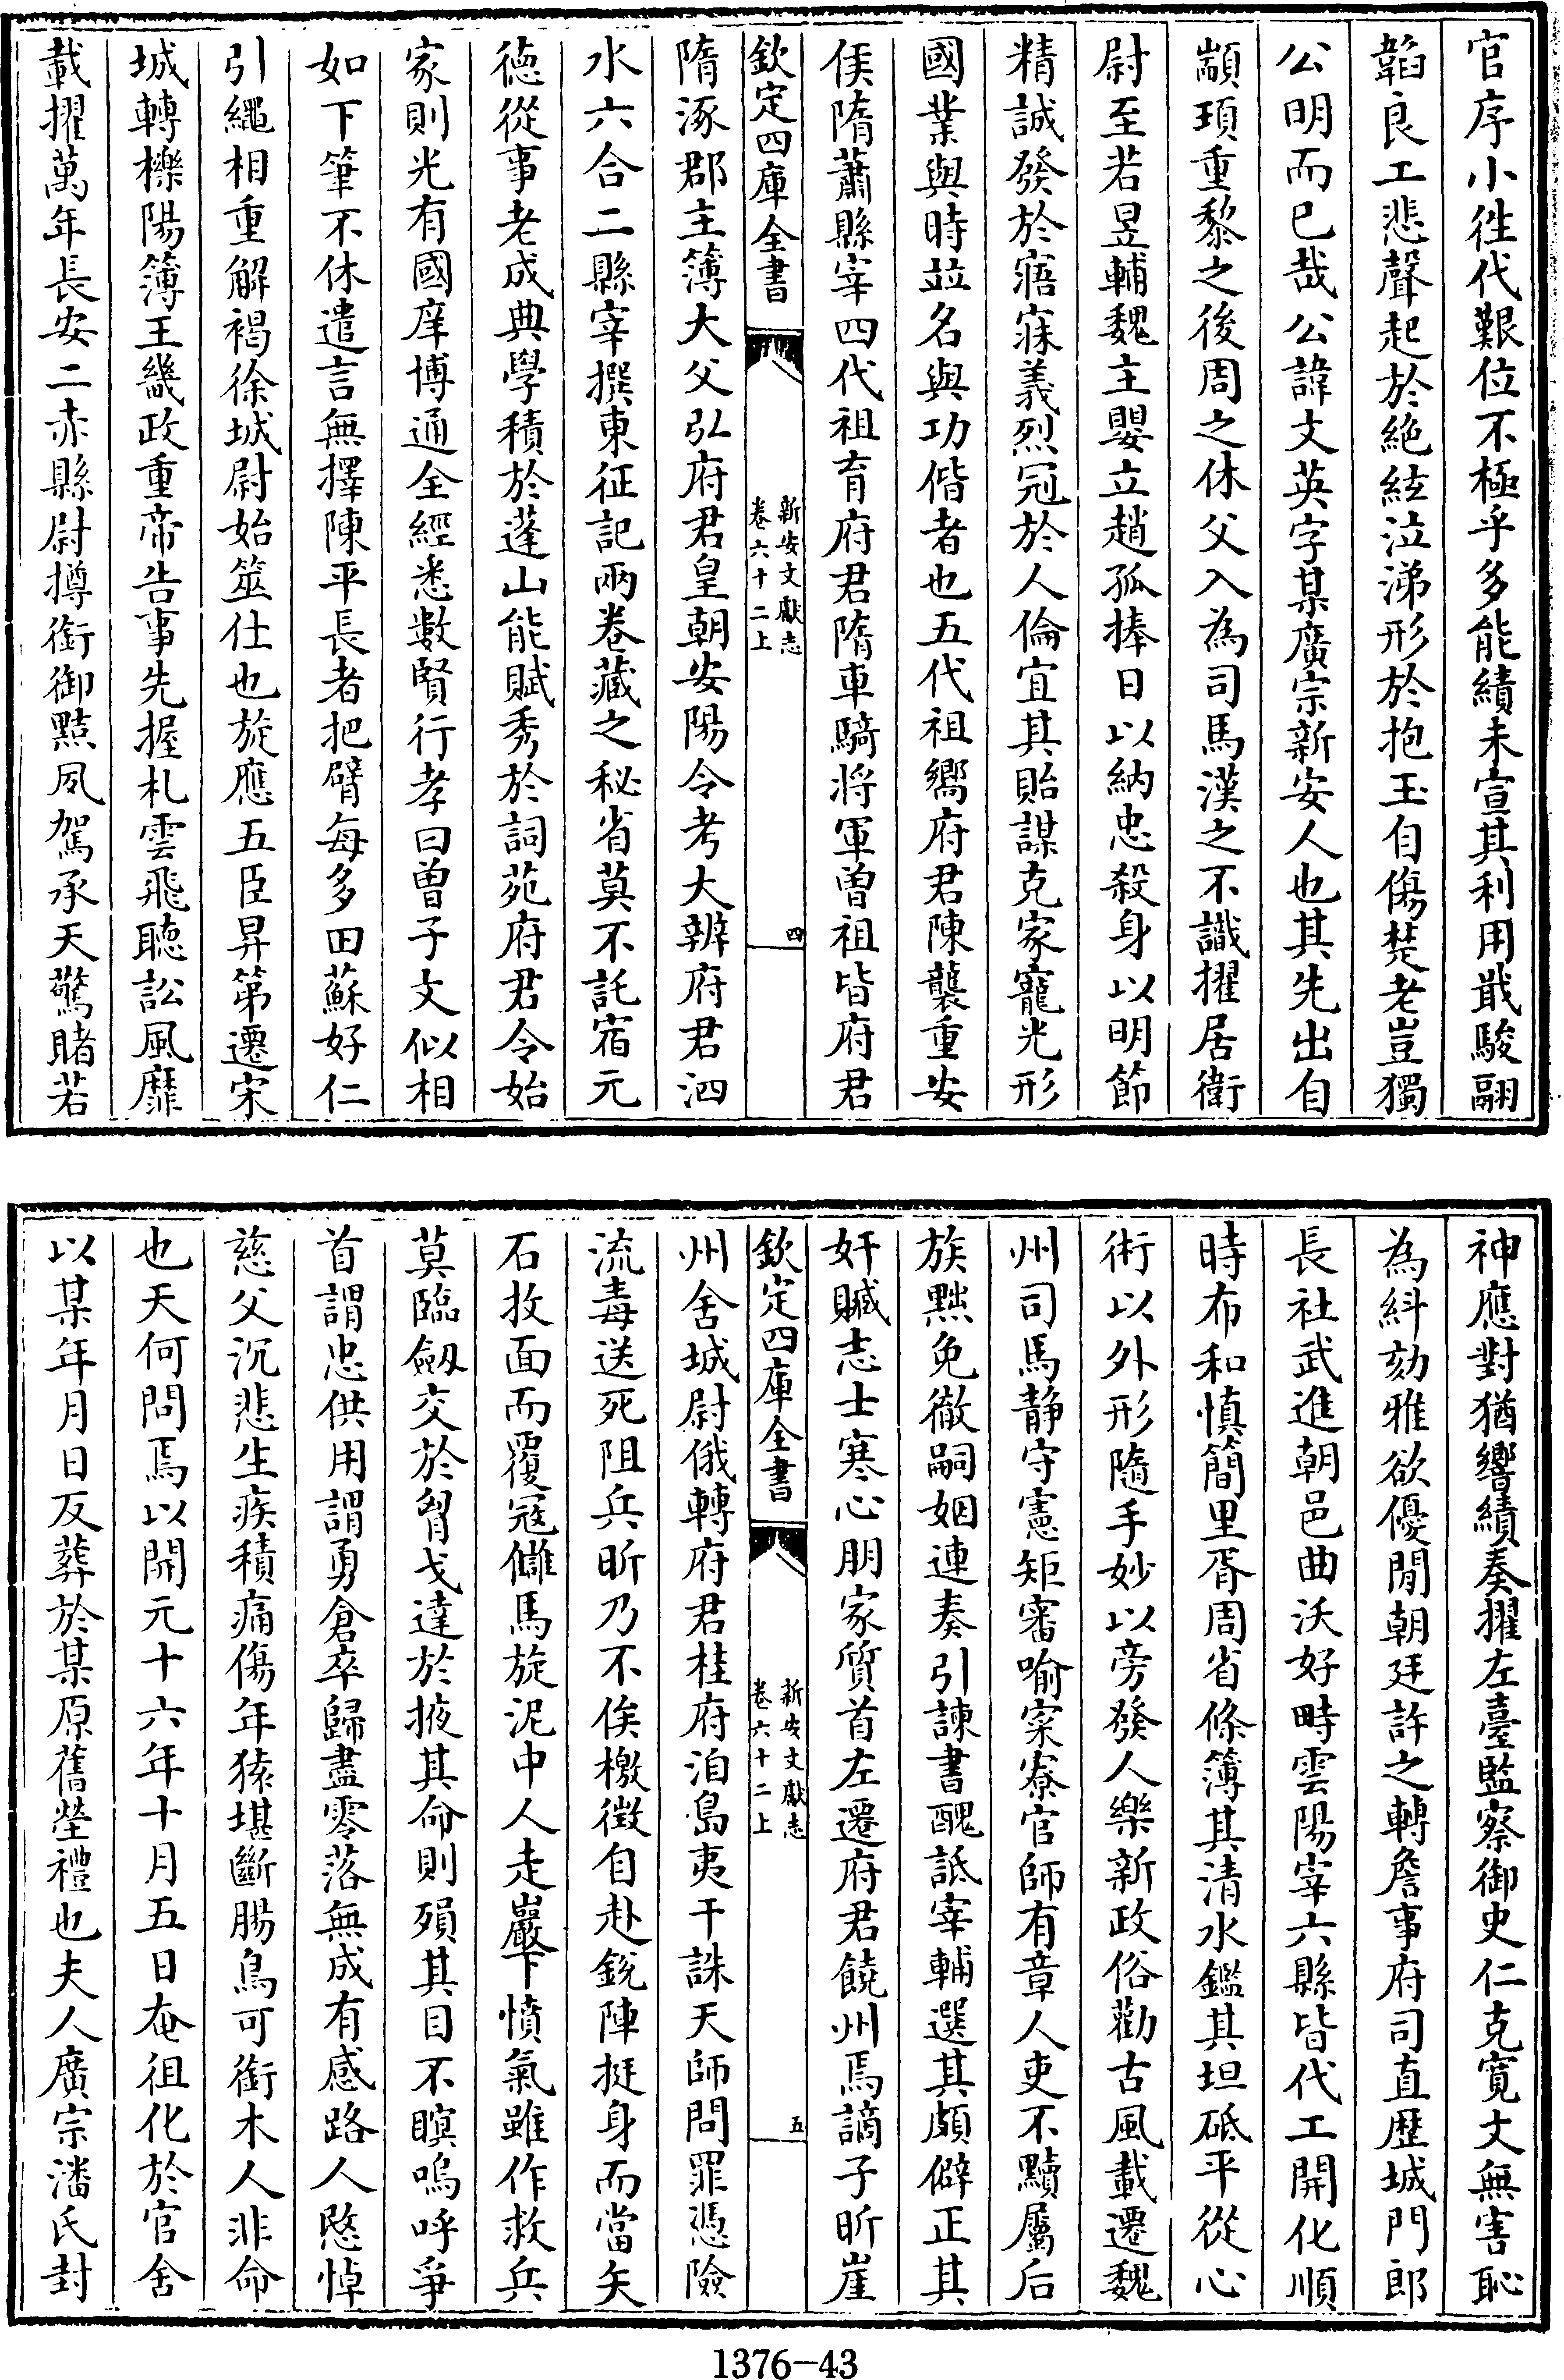 官序小徃代艱位不極乎多能績未宣其利用戢駿翮
韜良工悲聲起於絶絃泣涕形於抱玉自傷楚老豈獨
公明而已哉公諱文英字某廣宗新安人也其先出自
顓頊重黎之後周之休父入為司馬漢之不識擢居衛
尉至若昱輔魏主嬰立趙孤捧日以納忠殺身以明節
精誠發於寤寐義烈冠於人倫宜其貽謀克家寵光形
國業與時並名與功偕者也五代祖嚮府君陳襲重安
侯隋蕭縣宰四代祖育府君隋車騎將軍曾祖皆府君
欽定四庫全書
新安文獻志
卷六十二上
四
隋涿郡主簿大父弘府君皇朝安陽令考大辨府君泗
水六合二縣宰撰東征記兩卷藏之秘省莫不託宿元
德從事老成典學積於蓬山能賦秀於詞苑府君令始
家則光有國庠博通全經悉數賢行孝曰曾子文似相
如下筆不休遣言無擇陳平長者把臂每多田蘇好仁
引繩相重解褐徐城尉始筮仕也旋應五臣昇第遷宋
城轉櫟陽簿王畿政重帝告事先握札雲飛聽訟風靡
載擢萬年長安二赤縣尉撙銜御黠夙駕承天驚睹若
神應對猶響績奏擢左臺監察御史仁克寛文無害恥
為糾劾雅欲優閒朝廷許之轉詹事府司直歷城門郎
長社武進朝邑曲沃好畤雲陽宰六縣皆代工開化順
時布和慎簡里胥周省條簿其清水鑑其坦砥平從心
術以外形隨手妙以旁發人樂新政俗勸古風載遷魏
州司馬靜守憲矩審喻寀寮官師有章人吏不黷屬后
族黜免徹嗣姻連奏引諫書醜詆宰輔選其頗僻正其
奸贓志士寒心朋家質首左遷府君饒州焉謫子昕崖
欽定四庫全書
新安文獻志
卷六十二上
五
州舍城尉俄轉府君桂府洎島夷干誅天師問罪憑險
流毒送死阻兵昕乃不俟檄徵自赴銳陣挺身而當矢
石抆面而覆冦讎馬旋泥中人走巖下憤氣雖作救兵
莫臨劔交於胷戈達於掖其命則殞其目不瞑嗚呼爭
首謂忠供用謂勇倉卒歸盡零落無成有感路人愍悼
慈父沉悲生疾積痛傷年猿堪斷腸鳥可銜木人非命
也天何問焉以開元十六年十月五日奄徂化於官舍
以某年月日反葬於某原舊塋禮也夫人廣宗潘氏封
1376-43